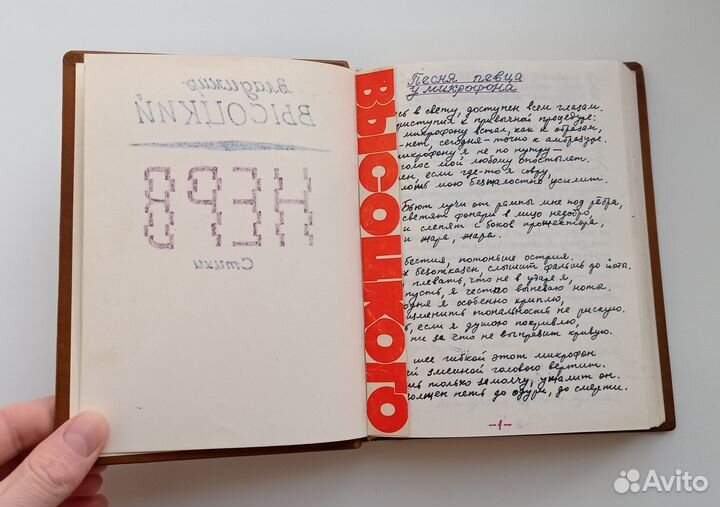 Владимир
ВЫСОЦКИЙ
НЕРВ
Стихи
ВЫСОЦКОГО
Песня певца
у микрофона
сь в свету, доступен всем глазам.
риступил к привычной процедуре:
микрофону встал, как к образам,
-нет, сегодня-точно к амбразуре.
микрофону я не по нутру-
голос мой любому опостылет.
ен, если где-то я совру,
ложь мою безжалостно усилит.
Бьют лучи от рампы мне под рёбра,
светят фонари в лицо недобро,
и слепят с боков прожектора,
и жара, жара.
бестия, потоньше острия.
к безотказен, слышит фальшь до йоты.
плевать, что не в ударе я,
пусть, я честно выпеваю ноты.
одня я особенно хриплю,
изменить тональность не рискую.
ь, если я душою покривлю,
ни за что не выправит кривую.
шее гибкой этот микрофон
ей змеиной головою вертит.
шь только замолчу, ужалит он.
олжен петь до одури, до смерти.
-1-
Avito